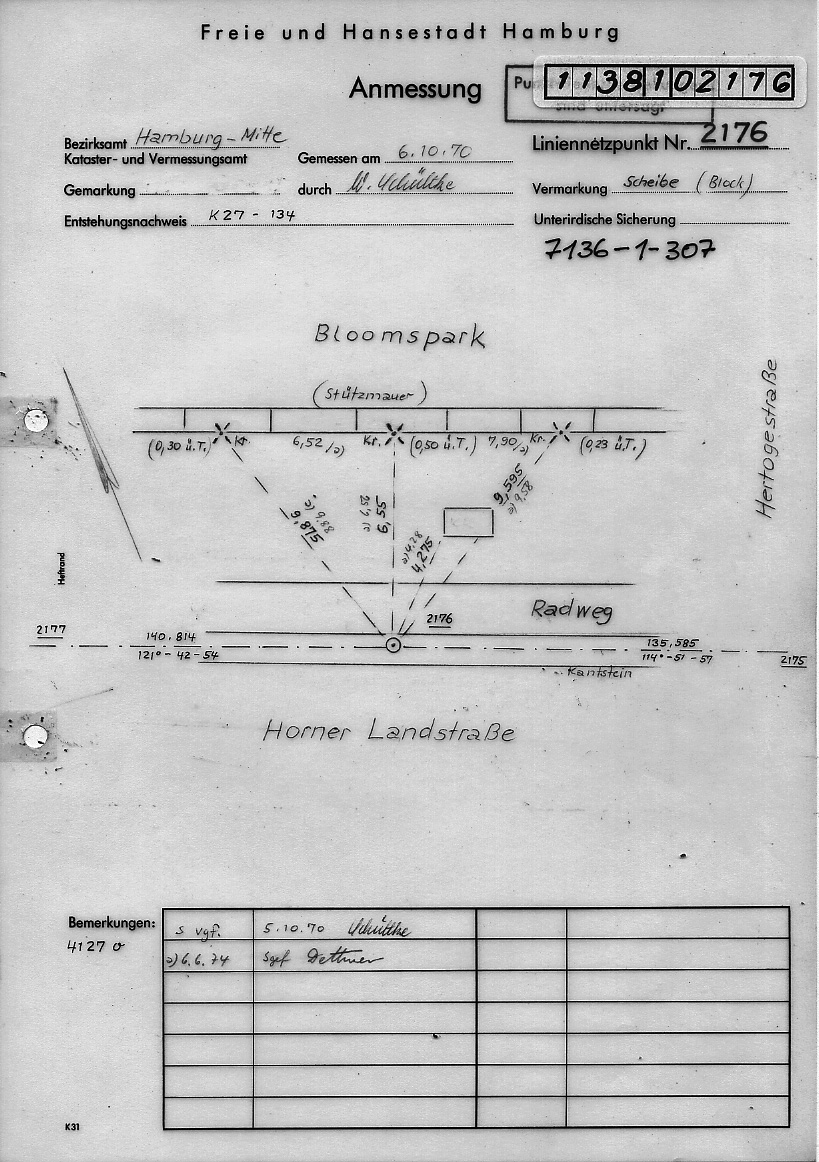 Freie und Hansestadt Hamburg
Anmessung
1138102176
sind untersagt
Bezirksamt Hamburg-Mitte
Kataster- und Vermessungsamt
Gemessen am 6.10.70
Liniennetzpunkt Nr. 2176
Gemarkung
durch W. Schültke
Vermarkung Scheibe (Block)
Entstehungsnachweis K27 - 134
Unterirdische Sicherung
7136-1-307
Bloomspark
(Stützmauer)
Hertogestraße
(0,30 ü.T.) Kr. 6,52/a) Kr. (0,50 ü.T.) 7,90/a) Kr. (0,23 ü.T.)
a) 9,88
9,875
6,55
9,595
a) 9,58
a) 4,28
4,275
Heftrand
Radweg
2176
2177
140.814
121° - 42 - 54
135.585
114° - 51 - 57
2175
Kantstein
Horner Landstraße
Bemerkungen:
4127 o
s vgf. 5.10.70 Schültke
a) 6.6.74 Sgef Dettmer
K31